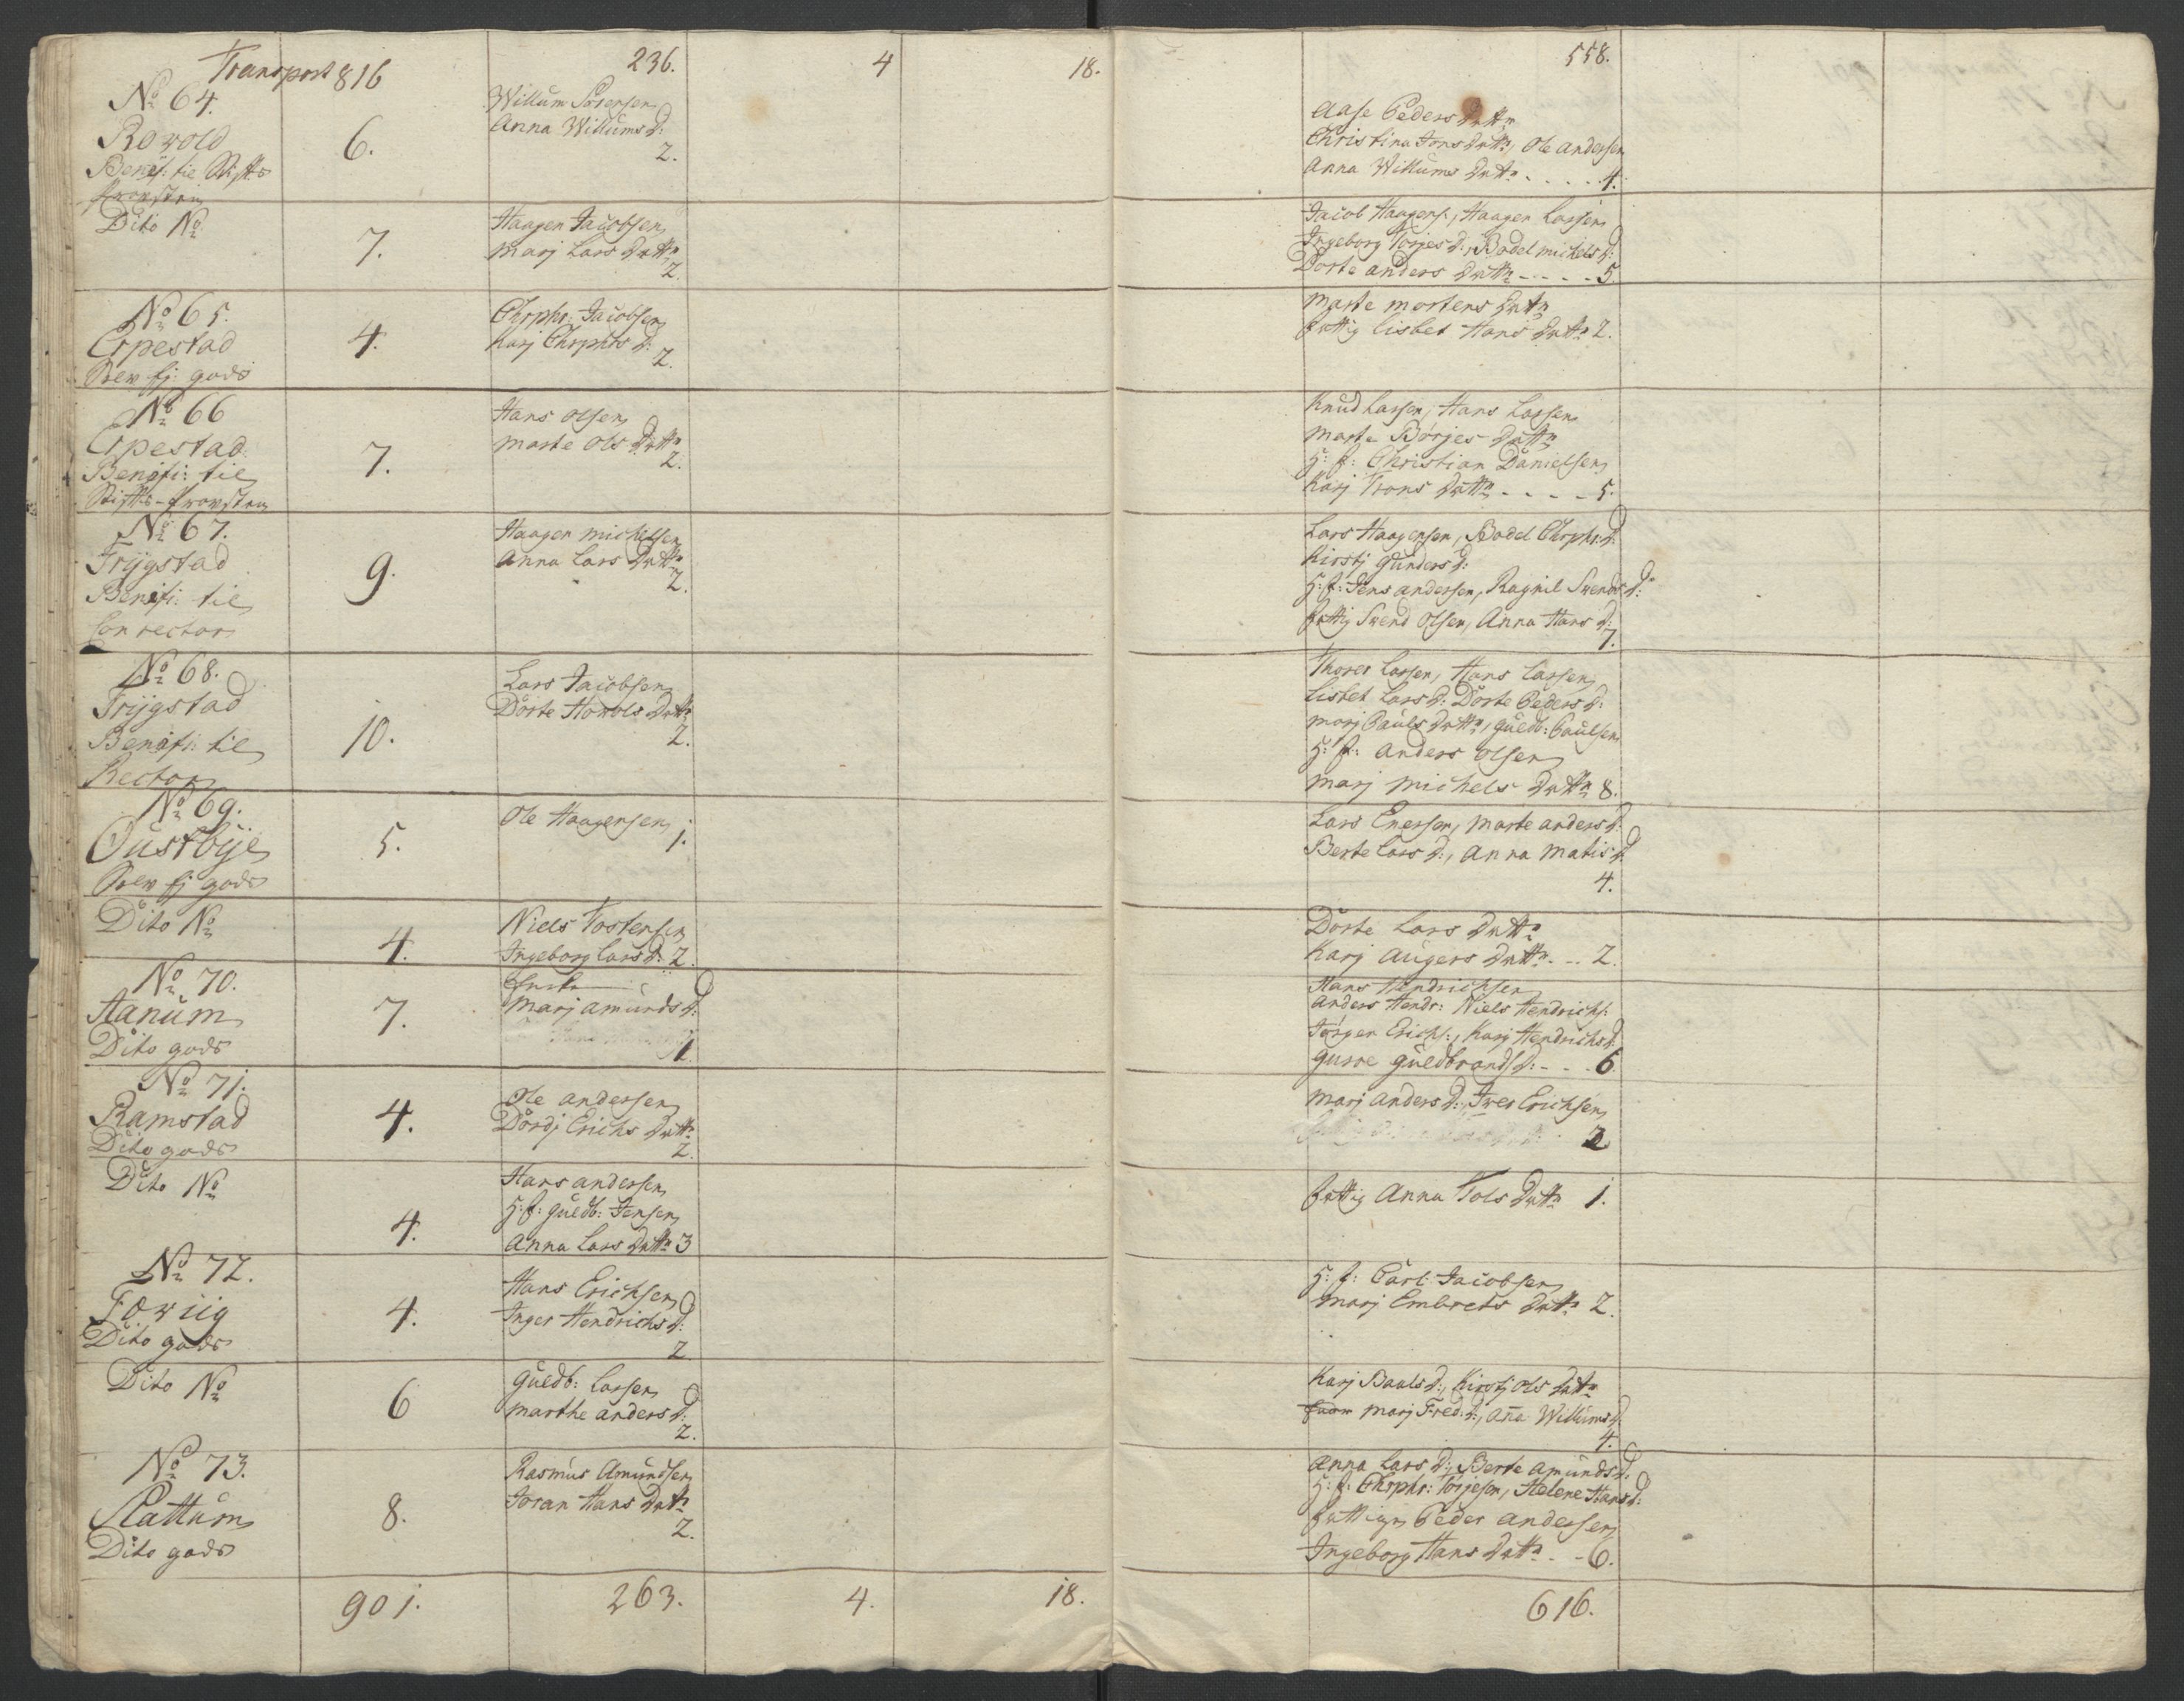 Transport 816 236. 4 18. 558.
No 64.
Rowold
Benef: til Stifts
Provsten
6.
Willum Sörensen
Anna Willums d:
2.
Aase Peders datter
Christina Jons datter, Ole andersen
Anna Willums datter . . . . 4.
Dito No
7.
Haagen Jacobsen
Marj Lars datter
2.
Jacob Haagens:, Haagen Larsen
Ingeborg Torjes d:, Bodel Michels d:
Dorte anders datter - - - - 5.
No 65.
Erpestad
4.
Chrphr: Jacobsen
Karj Chrphrs d:
2.
Marte Mortens datter
fattig Lisbet Hans datter 2.
No 66
Erpestad
Benefi: til
Stifts-Provsten
7.
Hans Olsen
Marte Ols datter
2.
Knud Larsen, Hans Larsen
Marte Börjes datter
H: f: Christian Danielsen
Karj Trons datter - - - - 5.
No 67.
Frÿgstad
Benefi: til
Conrector
9.
Haagen Michelsen
Anna Lars datter
2.
Lars Haagensen, Bodel Chrphr: d:
Kirstj Gunders d:
H: f: Jens andersen, Ragnil Swends d:
fattig Swend Olsen, Anna Hans d:
7.
No 68.
Frÿgstad
Benefi: til
Rector
10.
Lars Jacobsen
Dorte Howols datter
2.
Thores Larsen, Hans Larsen
Lisbet Lars d: Dorte Peders d:
Marj Pauls datter, Guldb: Paulsen
H: f: Anders Olsen
Marj Michels datter 8.
No 69.
Oustbÿe
5.
Ole Haagensen
1.
Lars Enersen, Marte anders d:
Berte Lars d:, Anna Matis d:
4.
Dito No
4.
Niels Tostensen
Ingeborg Lars d: 2.
Dorte Lars datter
Karj Augers datter - - 2.
No 70.
Hanum
Dito gods
7.
Enke
Marj Amunds d:
1.
Hans Hendrichsen
Anders Hendr: Niels Hendrichs:
Jörgen Erichs:, Karj Hendrichs d:
Gurre Guldbrands d: - - - 6.
No 71.
Ramstad
Dito gods
4.
Ole andersen
Dordj Erichs datter
2.
Marj Anders d:, Iwer Erichsen
2.
Dito No
4.
Hans andersen
H: f: Guldb: Jensen
Anna Lars datter 3
fattig Anna Tols datter 1.
No 72.
Dito gods
4.
Hans Erichsen
Inger Hendrichs d:
2
H: f: Carl Jacobsen
Marj Embrets datter 2.
Dito No
6
Guldb: Larsen
Marthe anders d:
2.
Karj Pauls d:, Kirstj Ols datter
Marj Fred: d:, Aña Willums d:
4.
No 73.
Slattum
Dito gods
8.
Rasmus Amundsen
Joran Hans datter
2.
Anna Lars d:, Berte Amunds d:
H: f: Chrphr: Törjesen, Helene Hans d:
fattige Peder andersen
Ingeborg Hans datter - - 6.
901. 263. 4. 18. 616.